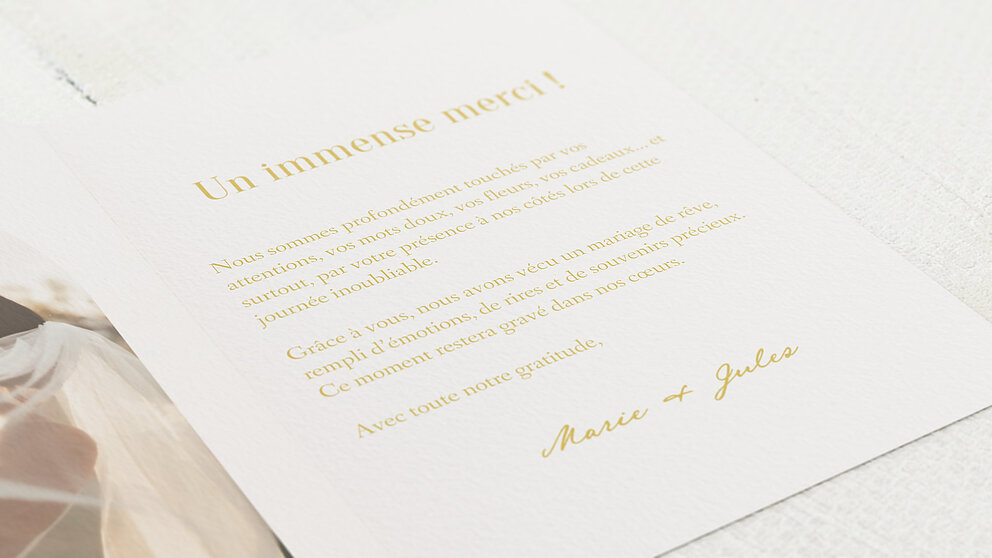 Un immense merci !
Nous sommes profondément touchés par vos
attentions, vos mots doux, vos fleurs, vos cadeaux... et
surtout, par votre présence à nos côtés lors de cette
journée inoubliable.
Grâce à vous, nous avons vécu un mariage de rêve,
rempli d'émotions, de rires et de souvenirs précieux.
Ce moment restera gravé dans nos cœurs.
Avec toute notre gratitude,
Marie + Jules